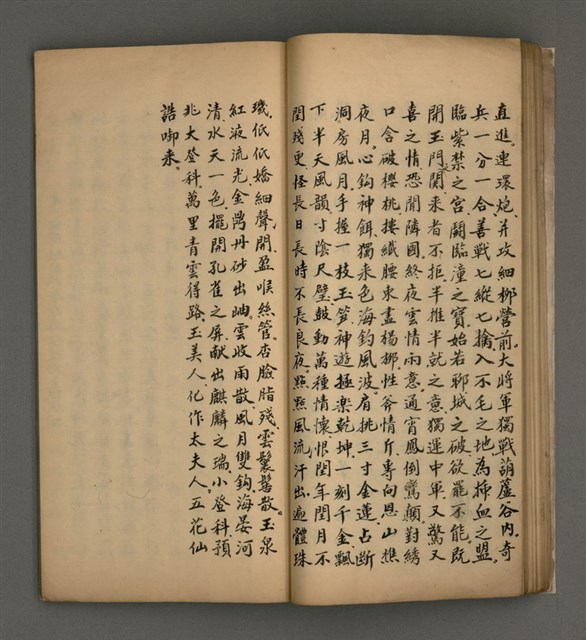 直進連環炮并攻細柳營前大將軍獨戰葫蘆谷內奇
兵一分一合善戰七縱七擒入不毛之地為揷血之盟
臨紫禁之宮闕臨潼之寶始若聊城之破欲罷不能既
開玉門関来者不拒半推半就之意獨運中軍又驚又
喜之情恐聞隣國終夜雲情雨意通宵鳳倒鸞顛對綉
口含破櫻桃摟纖腰束盡楊柳性斧情斤專向恩山樵
夜月心鈎神餌獨来色海釣風波肩挑三寸金蓮占斷
洞房風月手握一枝玉笋神遊極楽乾坤一刻千金飄
下半天風韻寸陰尺璧鼓動萬種情懷恨閏年閏月不
閏殘更怪長日長時不長良夜點點風流汗出遍體珠
璣低低嬌細聲開盈喉絲管杏臉脂殘雲鬟鬢散玉泉
紅液流光金鼎丹砂出岫雲收雨散風月雙鈎海晏河
清水天一色擺開孔雀之屏献出麒麟之瑞小登科預
兆大登科萬里青雲得路玉美人化作太夫人五花仙
誥啣来